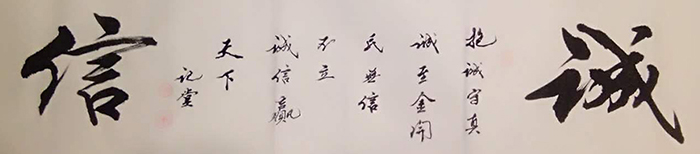 诚
抱诚守真
诚至金开
民無信
不立
诚信赢
天下
记堂
信